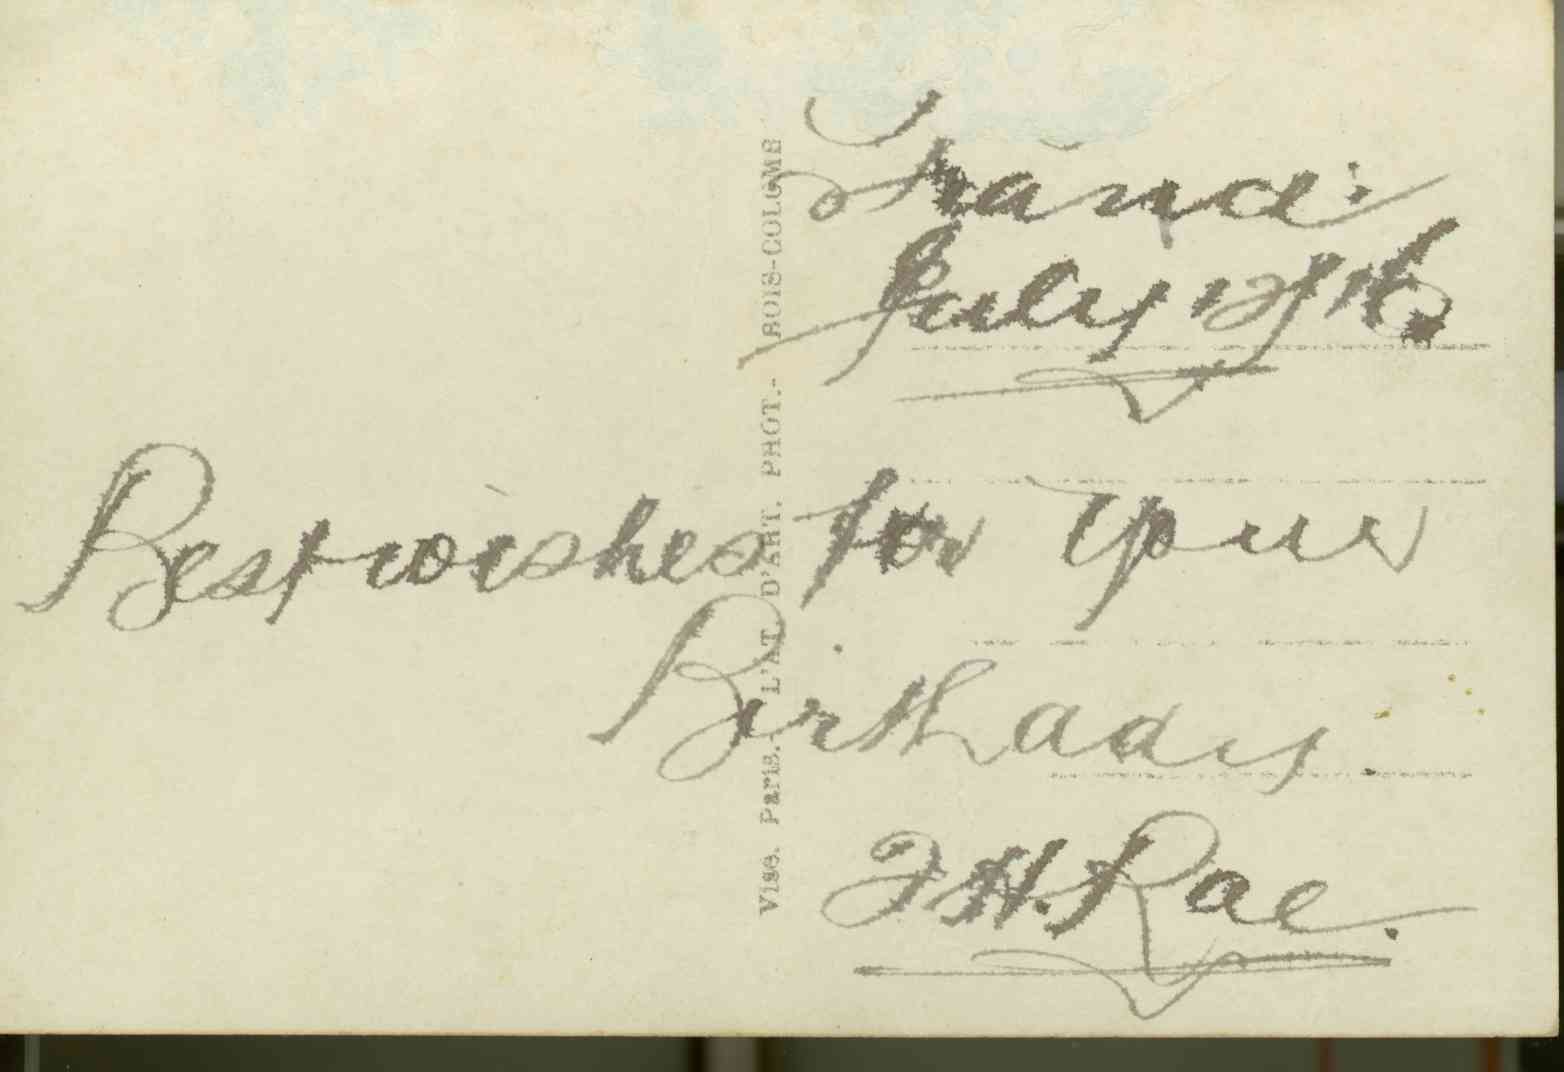 France.
July 12/16
Best wishes for your
Birthday.
F H. Rae.
Visé. Paris.- L'AT. D'ART. PHOT.- BOIS-COLOMB